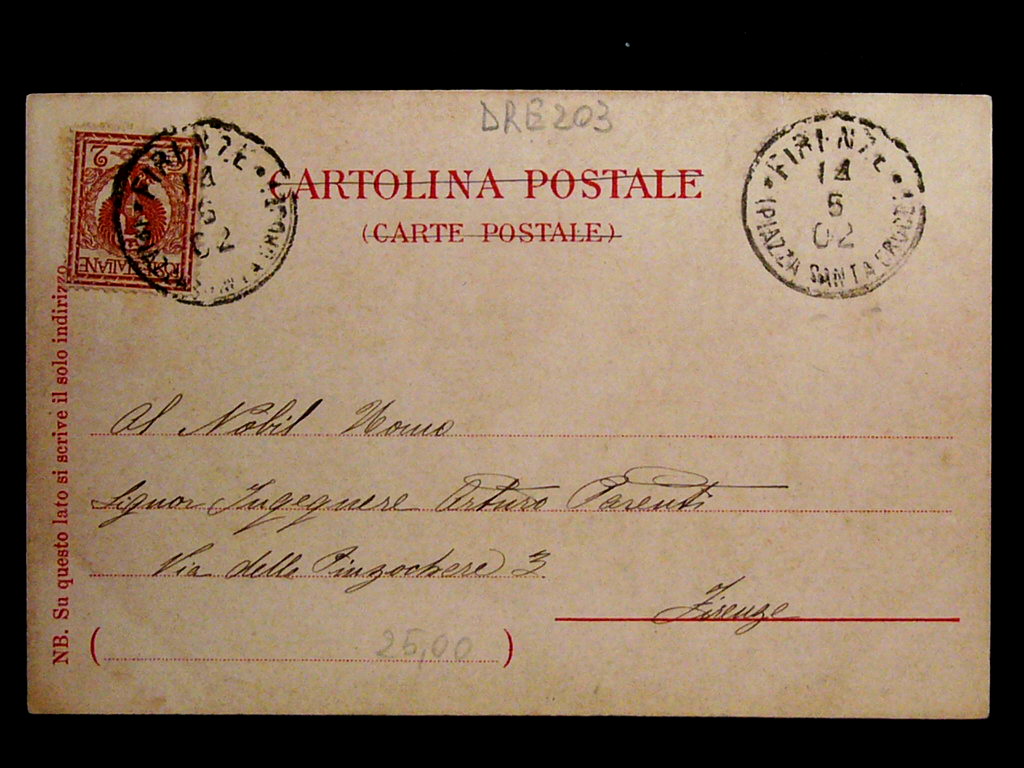 DRE203
CARTOLINA POSTALE
(CARTE POSTALE)
2
FIRENZE
14
5
02
FIRENZE
14
5
02
(PIAZZA SANTA CROCE)
NB. Su questo lato si scrive il solo indirizzo
Al Nobil Uomo
Signor Ingegnere Arturo Parenti
Via delle Pinzochere 3
Firenze
( 25,00 )